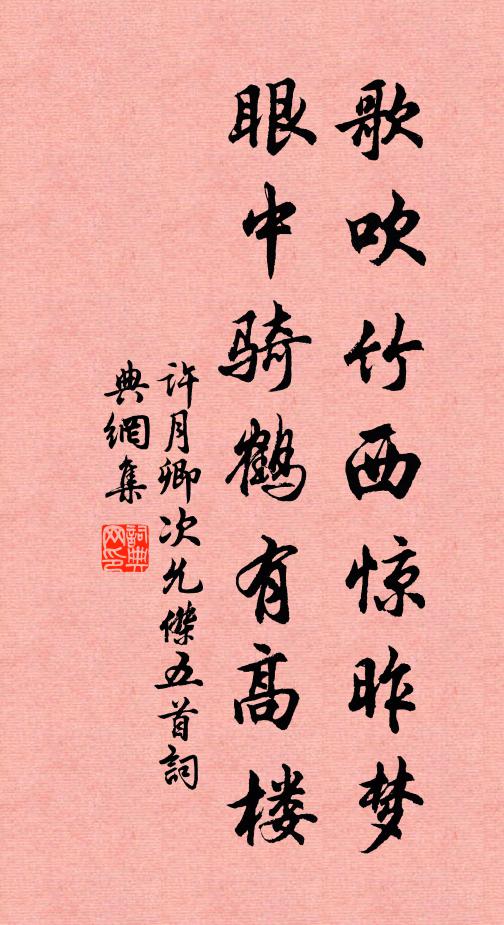 歌吹竹西惊昨梦
眼中骑鹤有高楼
许月卿次允傑五首詞
典網集
詞典
网印